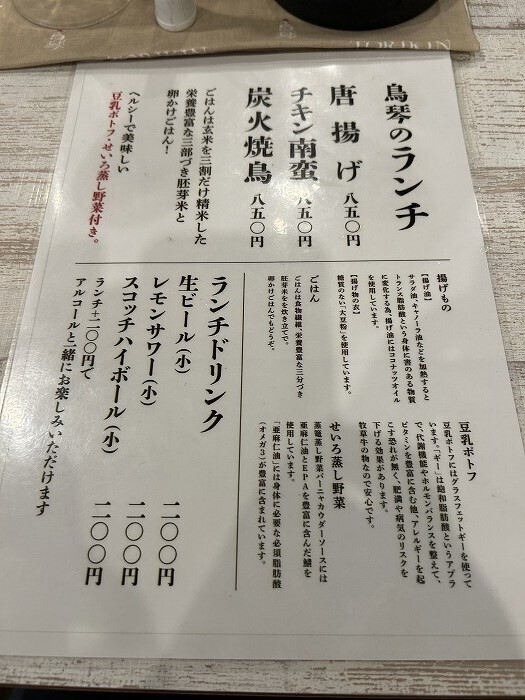 鳥琴のランチ
唐揚げ 八五〇円
チキン南蛮 八五〇円
炭火焼鳥 八五〇円
ごはんは玄米を三割だけ精米した
栄養豊富な三部づき胚芽米と
卵かけごはん！
ヘルシーで美味しい
豆乳ポトフ・せいろ蒸し野菜付き。
揚げもの
【揚げ油】
サラダ油、キャノーラ油などを加熱すると
トランス脂肪酸という身体に害のある物質
に変化する為、揚げ油にはココナッツオイル
を使用しています。
【揚げ物の衣】
糖質のない「大豆粉」を使用しています。
ごはん
ごはんは食物繊維、栄養豊富な三分づき
胚芽米をを炊き立てで。
卵かけごはんでもどうぞ。
豆乳ポトフ
豆乳ポトフにはグラスフェットギーを使って
います。「ギー」は飽和脂肪酸というアブラ
で、代謝機能やホルモンバランスを整えて、
ビタミンを豊富に含む他、アレルギーを起
こす恐れが無く、肥満や病気のリスクを
下げる効果があります。
牧草牛の物なので安心です。
せいろ蒸し野菜
蒸篭蒸し野菜バーニャカウダーソースには
亜麻仁油とEPAを豊富に含んだ鯖を
使用しています。
「亜麻仁油」には身体に必要な必須脂肪酸
（オメガ3）が豊富に含まれています。
ランチドリンク
生ビール（小） 二〇〇円
レモンサワー（小） 二〇〇円
スコッチハイボール（小） 二〇〇円
ランチ＋二〇〇円で
アルコールと一緒にお楽しみいただけます